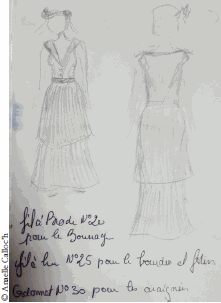 fil à Brode N°20
pour le Bourrage
fil à lin N°25 pour le bourdon et
Cordonnet N°30 pour les araignées
© Armelle Calloc'h